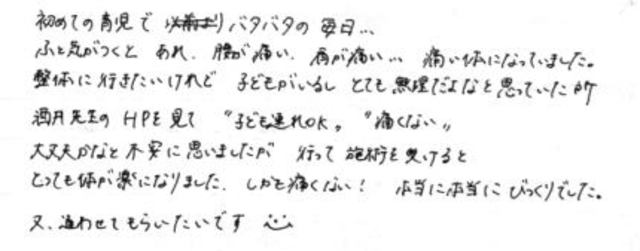 初めての育児で バタバタの毎日…
ふと気がつくと あれ、腰が痛い、肩が痛い… 痛い体になっていました。
整体に行きたいけれど 子どもがいるし とても無理だよなと思っていた時
酒井先生の HPを見て "子ども連れOK" "痛くない"
大丈夫かなと不安に思いましたが 行って施術を受けると
とっても体が楽になりました、しかも痛くない! 本当に本当にびっくりでした。
又、通わせてもらいたいです